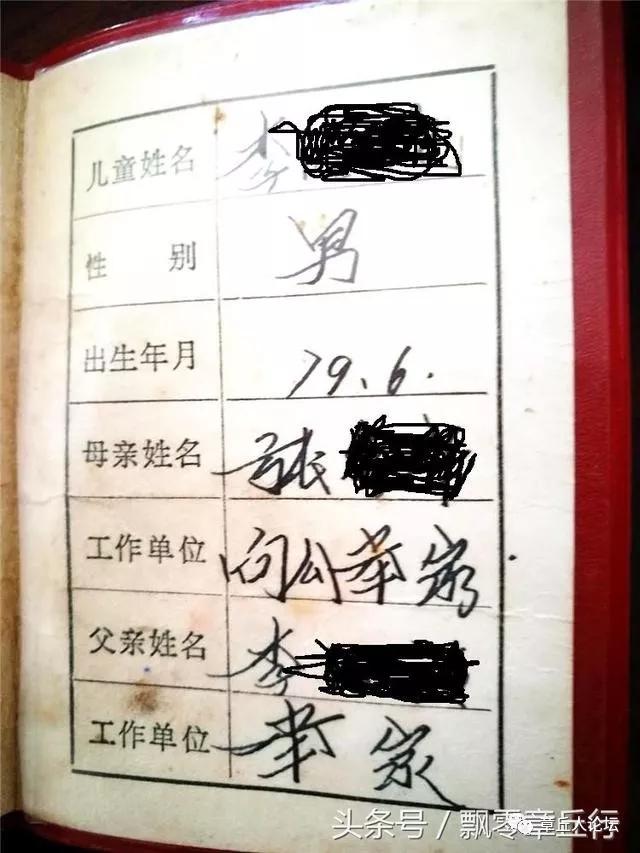 儿童姓名 李
性 别 男
出生年月 79.6.
母亲姓名 张
工作单位 向公
父亲姓名 李
工作单位
头条号/飘零章丘行
章丘人论坛